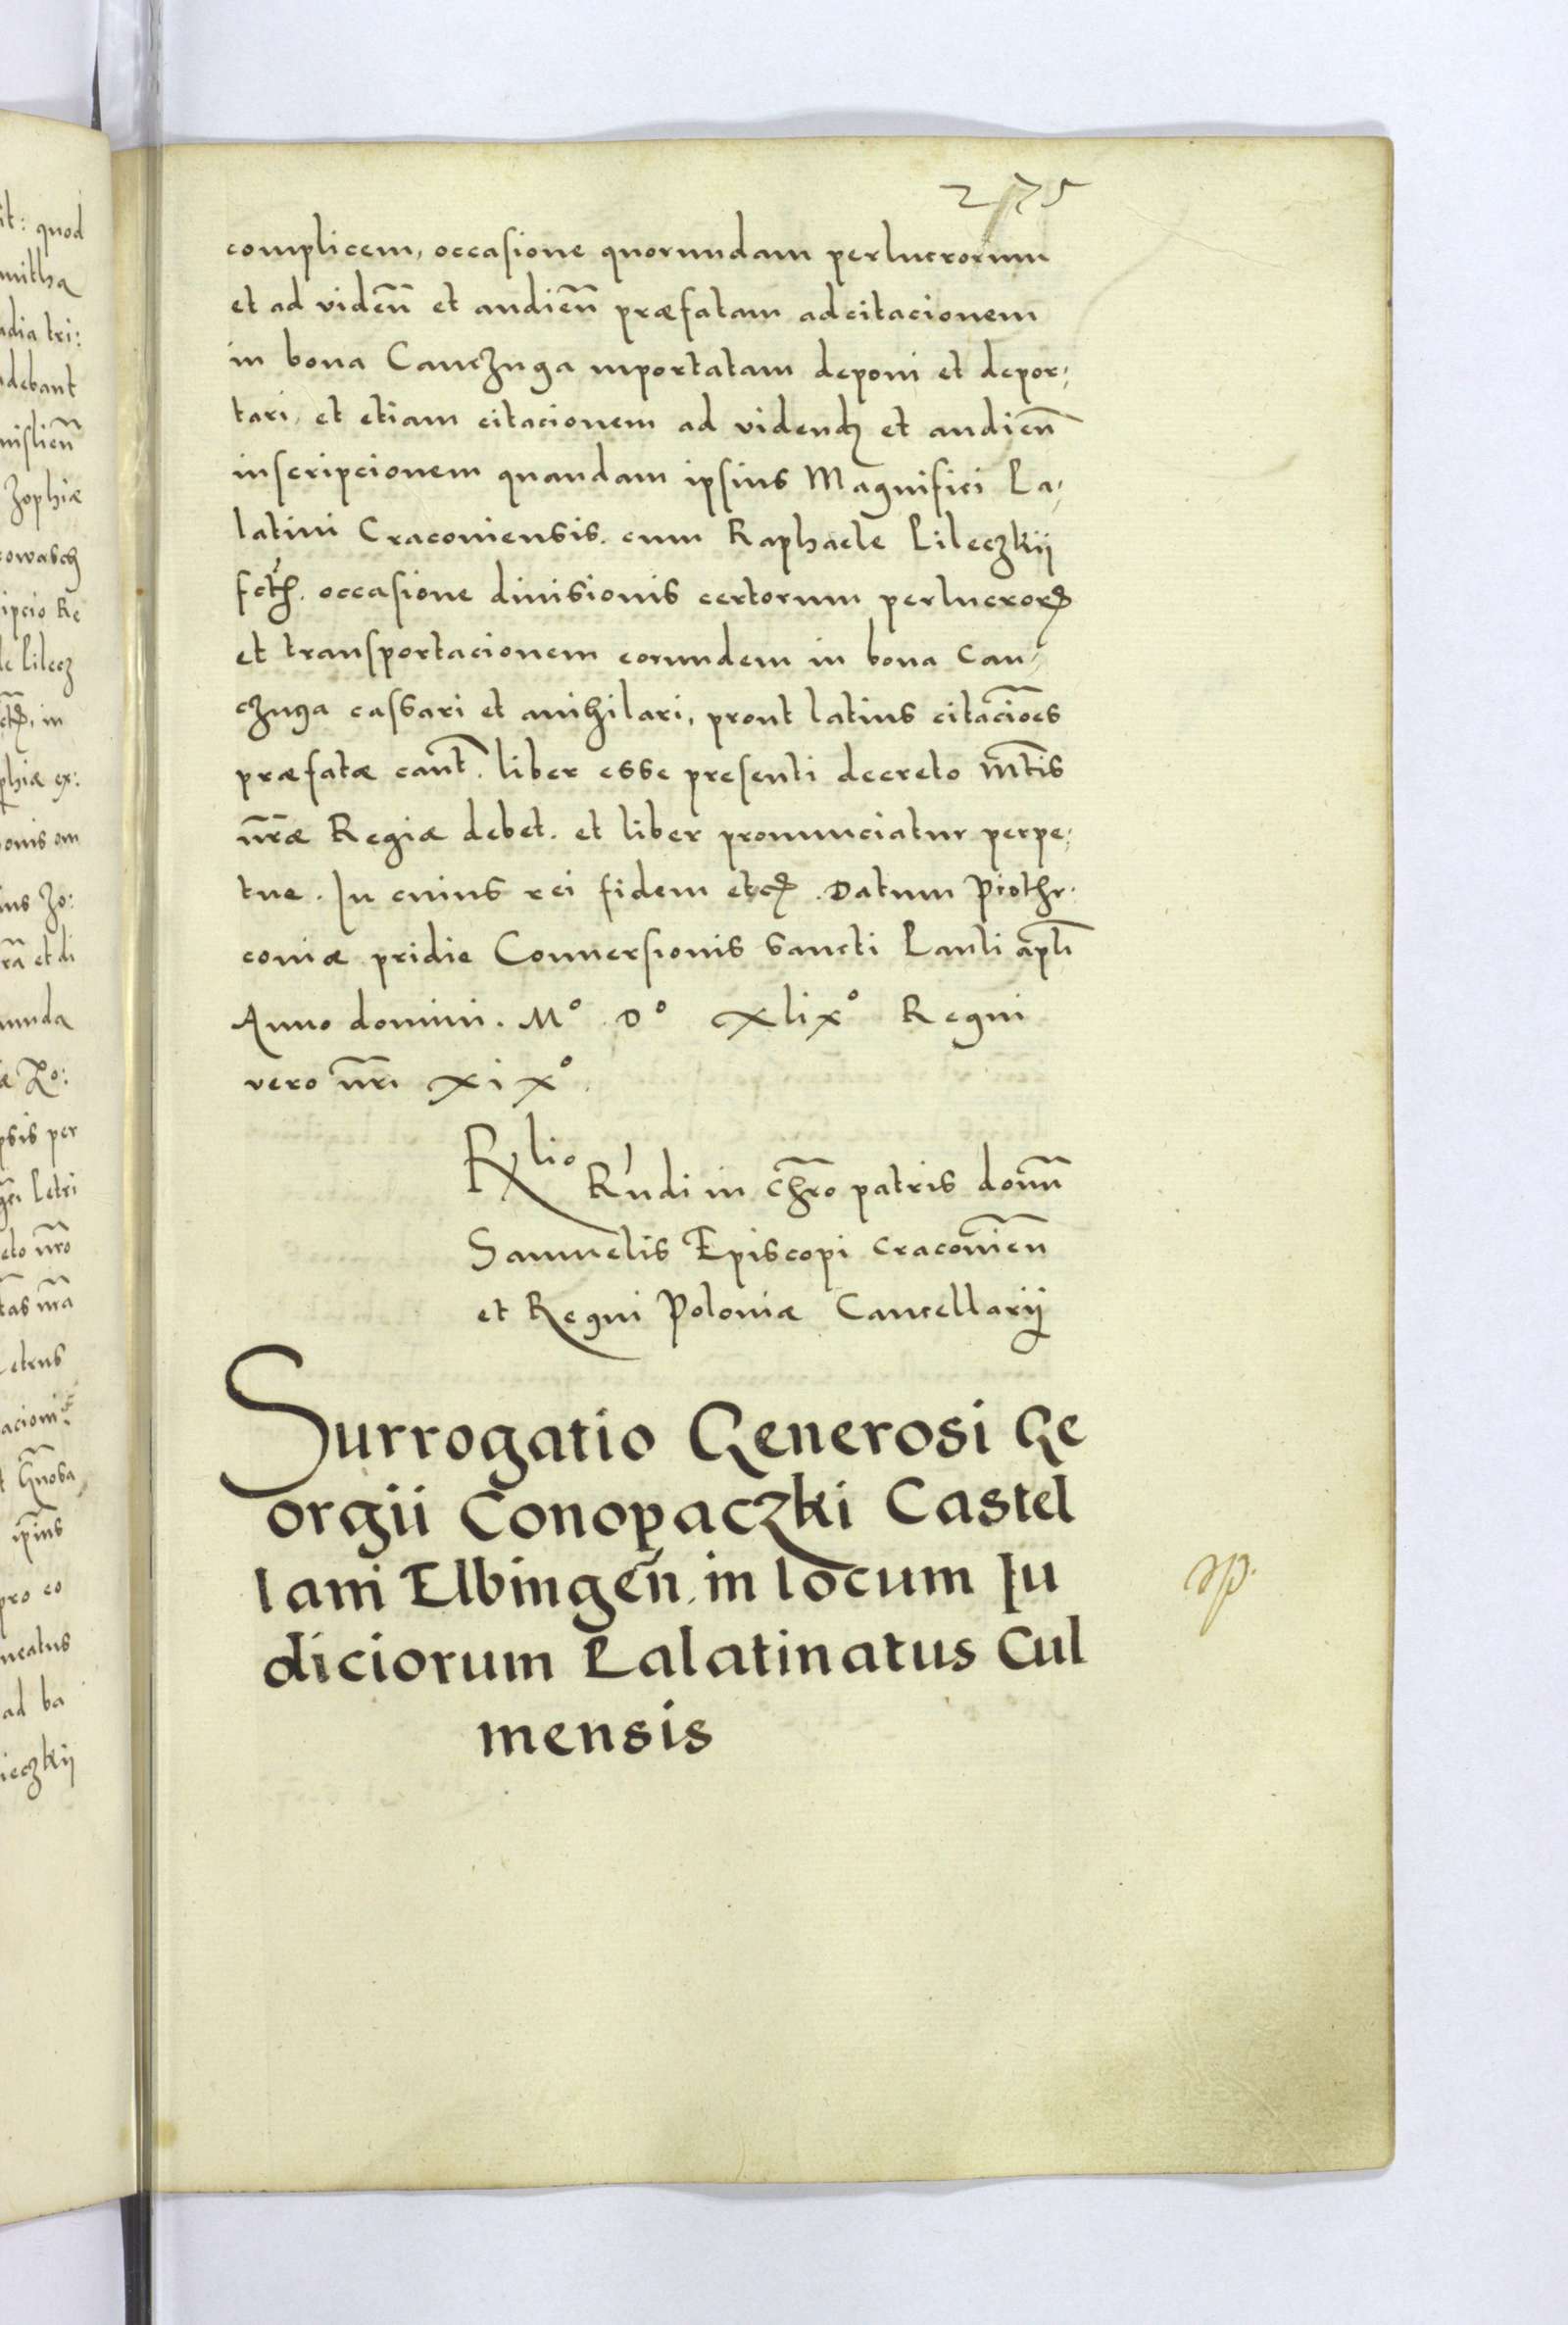 275
complicem, occasione quorundam perlucrorum
et ad viden̄ et audien̄ præfatam adcitacionem
in bona Canczuga inportatam deponi et depor,
tari, et etiam citacionem ad videnđ et audien̄
inscripcionem quandam ipsius Magnifici Pa,
latini Cracoviensis. cum Raphaele Pileczkij
occasione divisionis certorum perlucrorꝝ
et transportacionem eorundem in bona Can,
czuga cassari et anihilari, prout latius citac̄ioēs
præfatæ can̄t. liber esse presenti decreto M̄tis
n̄ræ Regiæ debet. et liber pronunciatur perpe,
tue. In cuius rei fidem etc. Datum Piothr.
coviæ pridie Conversionis Sancti Pauli ap̄li
Anno domini. M° D° xlix° Regni
vero n̄ri xix°.
Rlio
Rndi in Chr̄o patris domn̄
Samuelis Episcopi Cracovien̄
et Regni Poloniæ Cancellarij
Surrogatio Generosi Ge
orgii Conopaczki Castel
lani Elbingen̄. in locum Ju
diciorum Palatinatus Cul
mensis
it: quod
mitha
adia tri:
debant
mislien̄
Zophiæ
cowasch
ipcio Re
le Pilecz
in
phiæ ex:
onis om
ius Zo:
rā et di
munda
psis per
Petri
eto n̄ro
tas n̄ra
etrus
acioni
ip̄ius
pro eo
ucatus
ad ba
ieczkij